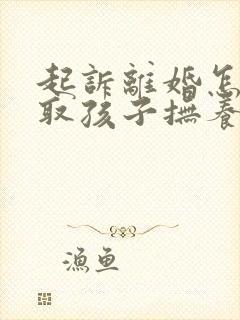 起訴離婚怎
取孩子撫養
漁魚